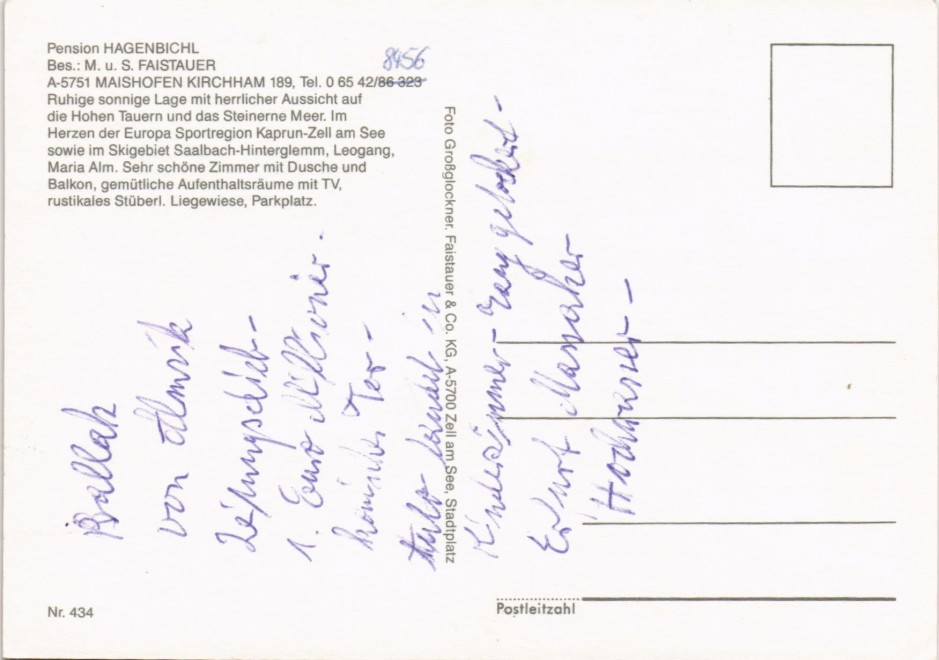 Pension HAGENBICHL
Bes.: M. u. S. FAISTAUER
8456
A-5751 MAISHOFEN KIRCHHAM 189, Tel. 0 65 42/86 323
Ruhige sonnige Lage mit herrlicher Aussicht auf
die Hohen Tauern und das Steinerne Meer. Im
Herzen der Europa Sportregion Kaprun-Zell am See
sowie im Skigebiet Saalbach-Hinterglemm, Leogang,
Maria Alm. Sehr schöne Zimmer mit Dusche und
Balkon, gemütliche Aufenthaltsräume mit TV,
rustikales Stüberl. Liegewiese, Parkplatz.
Foto Großglockner, Faistauer & Co. KG, A-5700 Zell am See, Stadtplatz
Ballak
von
1. Euro Millionär -
in
Kinderzimmer-
Erfurt Massaker
Hochwasser -
Nr. 434
Postleitzahl